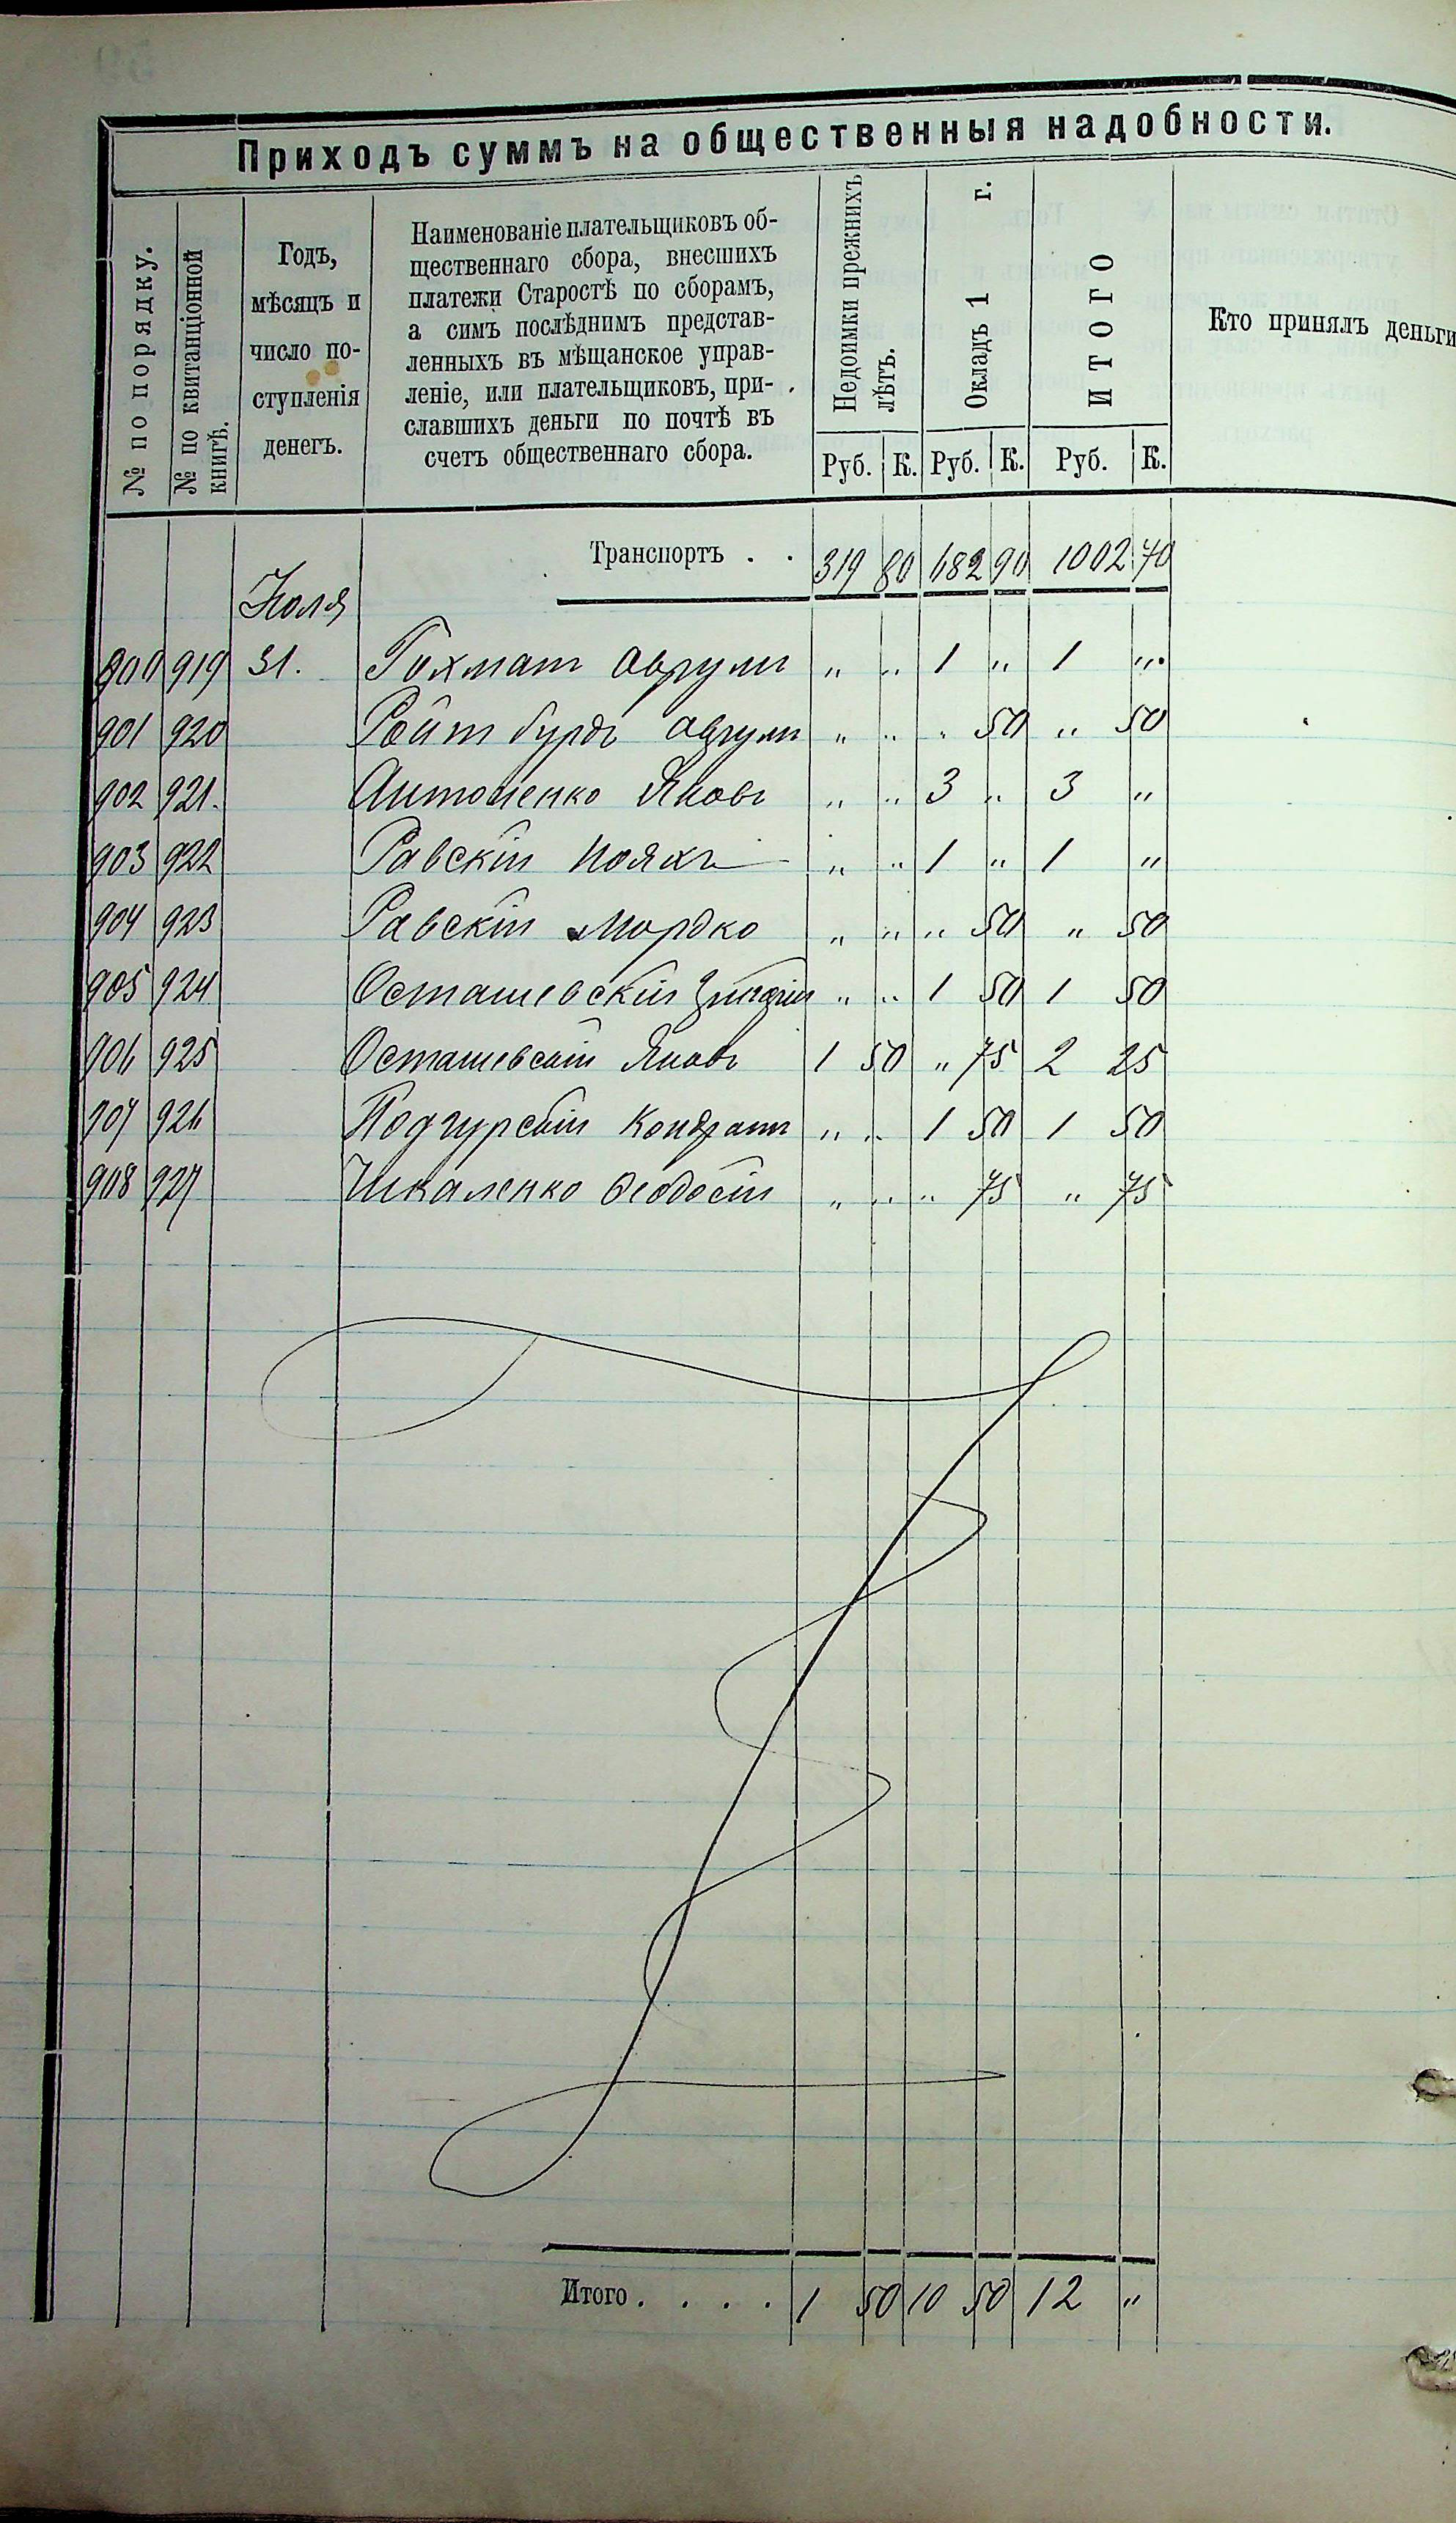 Приходъ суммъ на общественныя надобности.
№ по порядку.
№ по квитанціонной
книгѣ.
Годъ,
мѣсяцъ и
число по-
ступленія
денегъ.
Наименованіе плательщиковъ об-
щественнаго сбора, внесшихъ
платежи Старостѣ по сборамъ,
а симъ послѣднимъ представ-
ленныхъ въ мѣщанское управ-
леніе, или плательщиковъ, при-
славшихъ деньги по почтѣ въ
счетъ общественнаго сбора.
Недоимки прежнихъ
лѣтъ.
Окладъ 1 г.
ИТОГО
Кто принялъ деньги
Руб. К. Руб. К. Руб. К.
Транспортъ . . 319 80 682 90 1002 70
Июля
900 919 31. Гохман Аврум " " 1 " 1 "
901 920 Ройтбурдъ Аврум " " " 50 " 50
902 921. Антоненко Яковъ " " 3 " 3 "
903 922 Равскій Нояхъ " " 1 " 1 "
904 923 Равскій Мордко " " " 50 " 50
905 924 Осташевскій " " 1 50 1 50
906 925 Осташевскій Яковъ 1 50 " 75 2 25
907 926 Подгурскій Кондрат " " 1 50 1 50
908 927 Шкаленко Ѳеодосій " " " 75 " 75
Итого . . . . 1 50 10 50 12 "